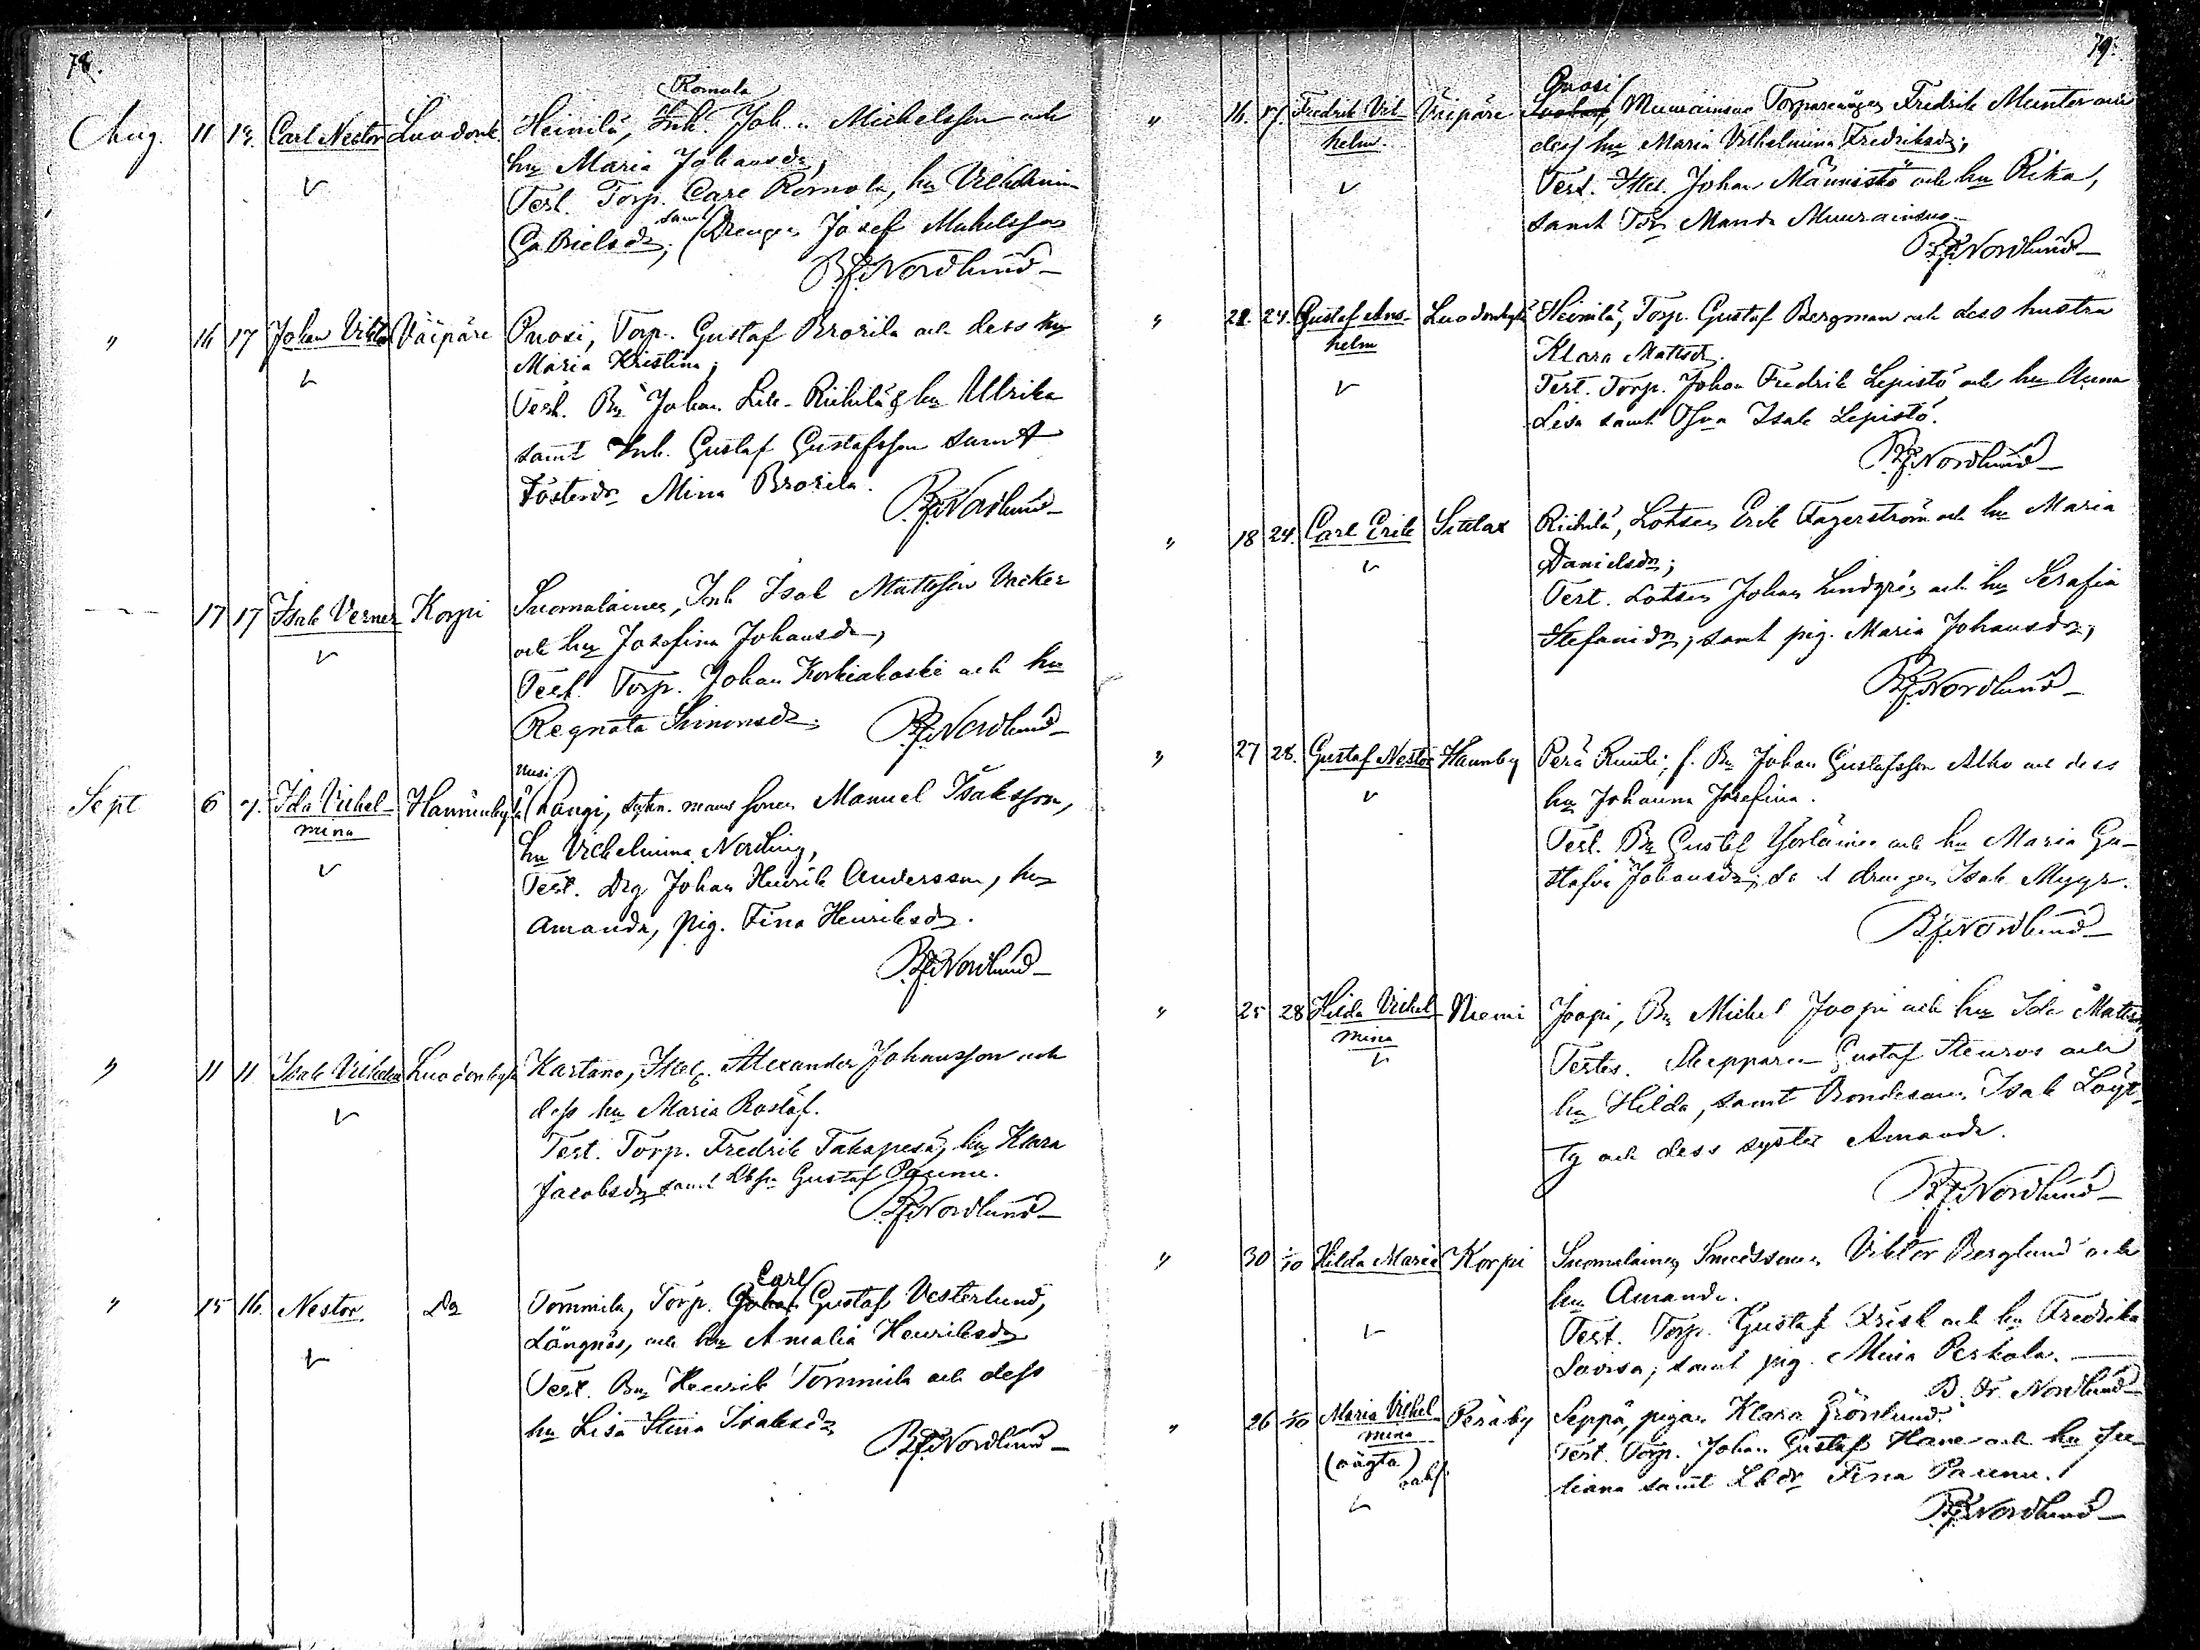 78.
Romula
Aug. 11 13. Carl Nestor Luodonk. Heinilä, Inh. Joh. Michelsson och
hu Maria Johansdr,
Test. Torp. Carl Romola, hu Vilhelmin
samt
Gabrielsdr, Drengen Josef Mickelsson
B.f. Nordlund
" 16 17 Johan Viktor Väipäre Puosi, Torp. Gustaf Brorila och dess hu
Maria Kristina;
Test. Bn Johan Lill-Riihilä & hu Ullrika
samt Inh. Gustaf Gustafsson samt
Fosterdr Mina Brorila.
B.f. Nordlund
17 17 Isak Verner Korpi Suomalainen, Inh Isak Mattsson Vacker
och hu Josefina Johansdr,
Test. Torp. Johan Korkiakoski och hu
Regnata Simonsdr.
B.f. Nordlund
Uusi
Sept 6 7. Ida Vilhel- Hannunkylä Langi, sytn. mans sonen Manuel Isaksson,
mina
hu Vilhelmina Nording,
Test. Drg Johan Henrik Andersson, hu
Amanda, pig. Fina Henriksdr.
B.f. Nordlund
" 11 11 Isak Vilhelm Luodonkylä Kartano, Alexander Johansson och
dess hu Maria Roslöf.
Test. Torp. Fredrik Takapesä, hu Klara
Jacobsdr samt Gustaf Paunu.
B.f. Nordlund
Carl
" 15 16. Nestor Do Tommila, Torp. Johan Gustaf Vesterlund,
Långnäs, och hu Amalia Henriksdr
Test. Bn Henrik Tommila och dess
hu Lisa Stina Isaksdr
B.f. Nordlund
79.
Puosi
" 16. 17. Fredrik Vil- Väipäre Muurainsuo Torparemågen Fredrik Munter och
helm.
dess hu Maria Vilhelmina Fredriksdr,
Test. Johan Männistö och hu Rika,
samt Manda Muurainsuo
B.f. Nordlund
" 21. 24. Gustaf Ans- Luodonkylä Heinilä, Torp. Gustaf Bergman och dess hustru
helm
Klara Matsdr.
Test. Torp. Johan Fredrik Lepistö och hu Anna
Lisa samt Isak Lepistö.
B.f. Nordlund
" 18 24. Carl Erik Sutelax Riihilä, Lotsen Erik Fagerström och hu Maria
Danielsdr;
Test. Lotsen Johan Lindgrén och hu Serafia
Stefanidr, samt pig. Maria Johansdr,
B.f. Nordlund
" 27 28. Gustaf Nestor Hannby Perä Ruuti, f. Bn Johan Gustafsson Alho och dess
hu Johanna Josefina.
Test. Bn Gustaf och hu Maria Gu-
stafva Johansdr; drengen Isak Myyr.
B.f. Nordlund
" 25 28 Hilda Vilhel- Niemi Joopi, Bn Michel Joopi och hu Ida Mattsdr
mina
Testes. Skepparen Gustaf Stenros och
hu Hilda, samt Bondesonen Isak Löyt-
ty och dess syster Amanda.
B.f. Nordlund
" 30 1/10 Hilda Maria Korpi Suomalainen Smedssonen Viktor Berglund och
hu Amanda.
Test. Torp. Gustaf Frisk och hu Fredrika
Lovisa, samt pig. Mina Perkola.
B. Fr. Nordlund
" 26 1/10 Maria Vilhel- Peräby Seppä, pigan Klara Grönlund.
mina
(oägta)
Test. Torp. Johan Gustaf Hane och hu Ju-
liana samt Fina Paunu.
B.f. Nordlund